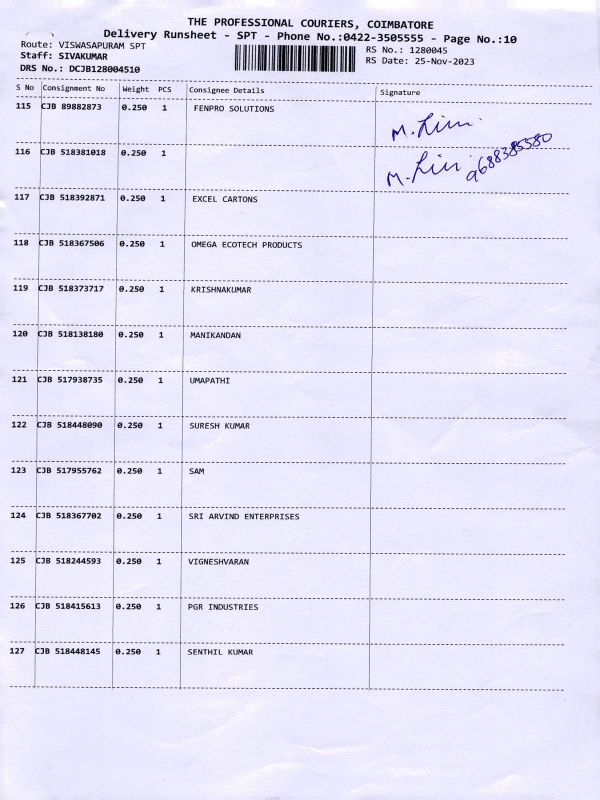 THE PROFESSIONAL COURIERS, COIMBATORE
Delivery Runsheet - SPT - Phone No.:0422-3505555 - Page No.:10
Route: VISWASAPURAM SPT
RS No.: 1280045
Staff: SIVAKUMAR
RS Date: 25-Nov-2023
DRS No.: DCJB128004510
S No Consignment No Weight PCS Consignee Details Signature
115 CJB 89882873 0.250 1 FENPRO SOLUTIONS
M.
116 CJB 518381018 0.250 1
M. 9688385580
117 CJB 518392871 0.250 1 EXCEL CARTONS
118 CJB 518367506 0.250 1 OMEGA ECOTECH PRODUCTS
119 CJB 518373717 0.250 1 KRISHNAKUMAR
120 CJB 518138180 0.250 1 MANIKANDAN
121 CJB 517938735 0.250 1 UMAPATHI
122 CJB 518448090 0.250 1 SURESH KUMAR
123 CJB 517955762 0.250 1 SAM
124 CJB 518367702 0.250 1 SRI ARVIND ENTERPRISES
125 CJB 518244593 0.250 1 VIGNESHVARAN
126 CJB 518415613 0.250 1 PGR INDUSTRIES
127 CJB 518448145 0.250 1 SENTHIL KUMAR